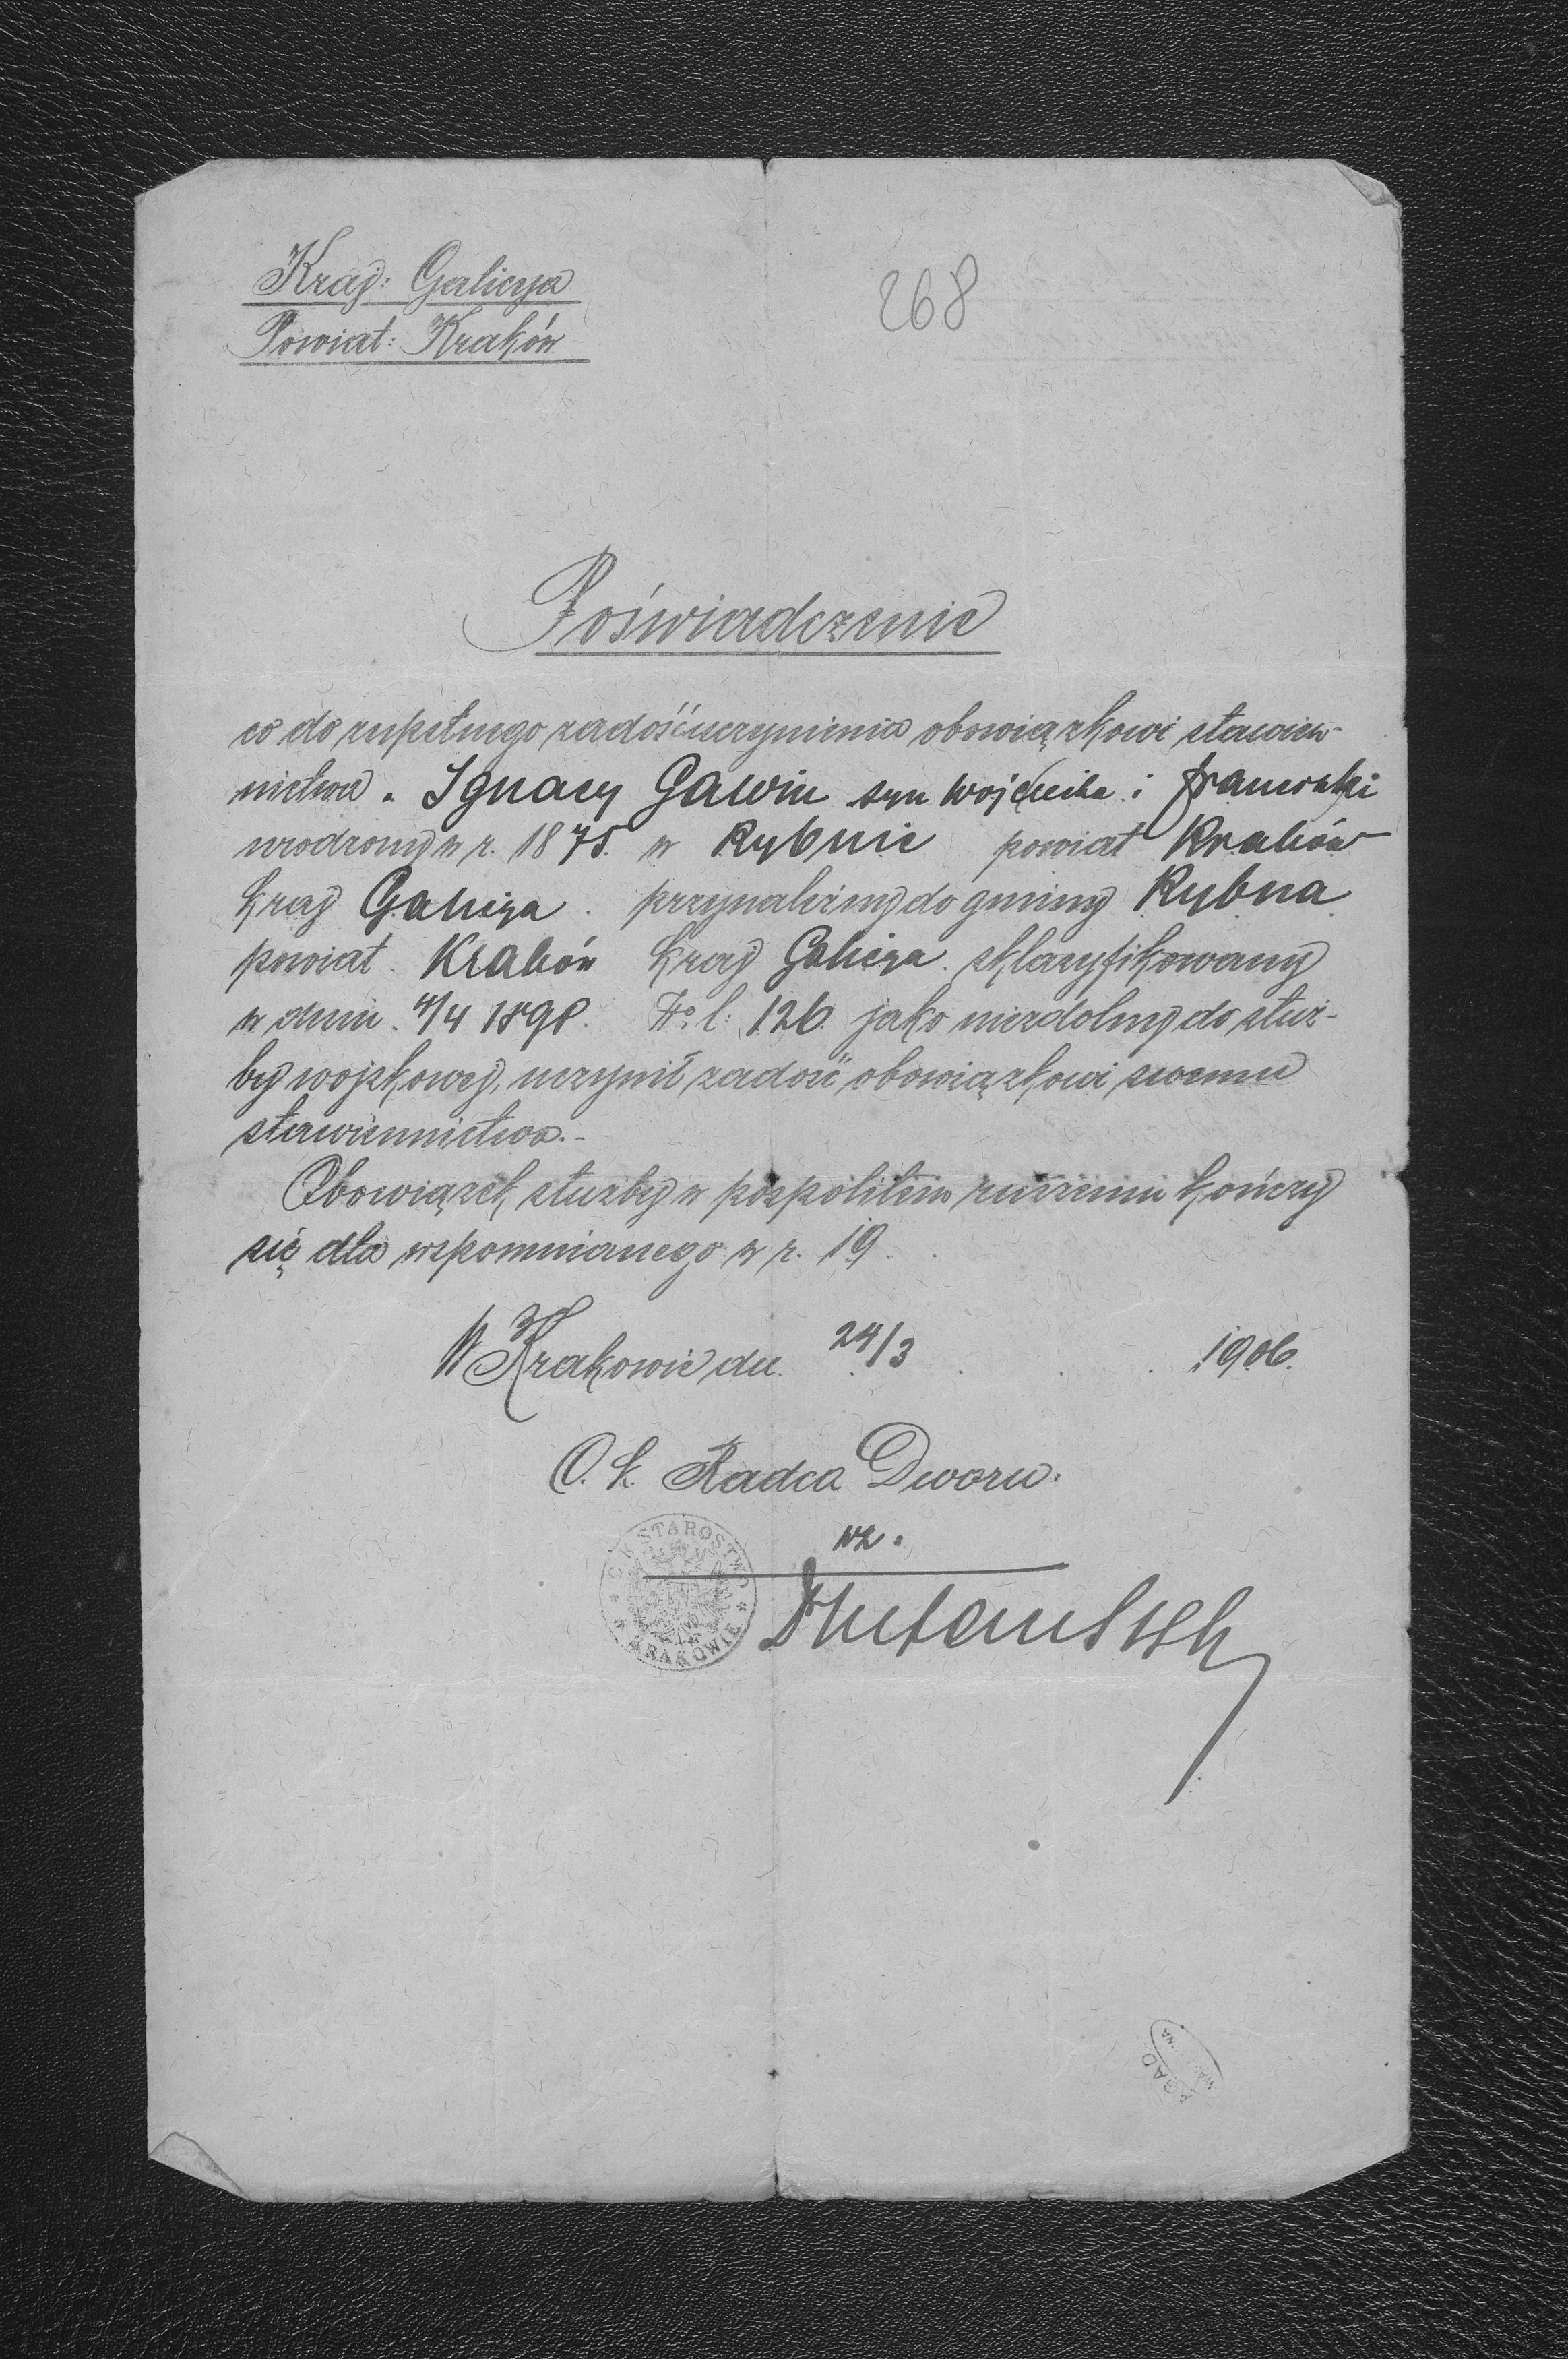 Kraj: Galicya
268
Powiat: Kraków
Poświadczenie
co do zupełnego zadośćuczynienia obowiązkowi stawien-
nictwa. Ignacy Gawin syn Wojciecha i Franciszki
urodzony w r. 1875. w Rybnie powiat Kraków
kraj Galicya. przynależny do gminy Rybna
powiat Kraków kraj Galicya. sklasyfikowany
w dniu 4/4 1898. l: 126. jako niezdolny do służ-
by wojskowej, uczynił zadość obowiązkowi swemu
stawiennictwa.-
Obowiązek służby w pospolitem ruszeniu kończy
się dla wspomnianego w r. 19 .
W Krakowie dn. 24/3 1906.
C. k. Radca Dworu.
wz.
C. K. STAROSTWO W KRAKOWIE
AGAD